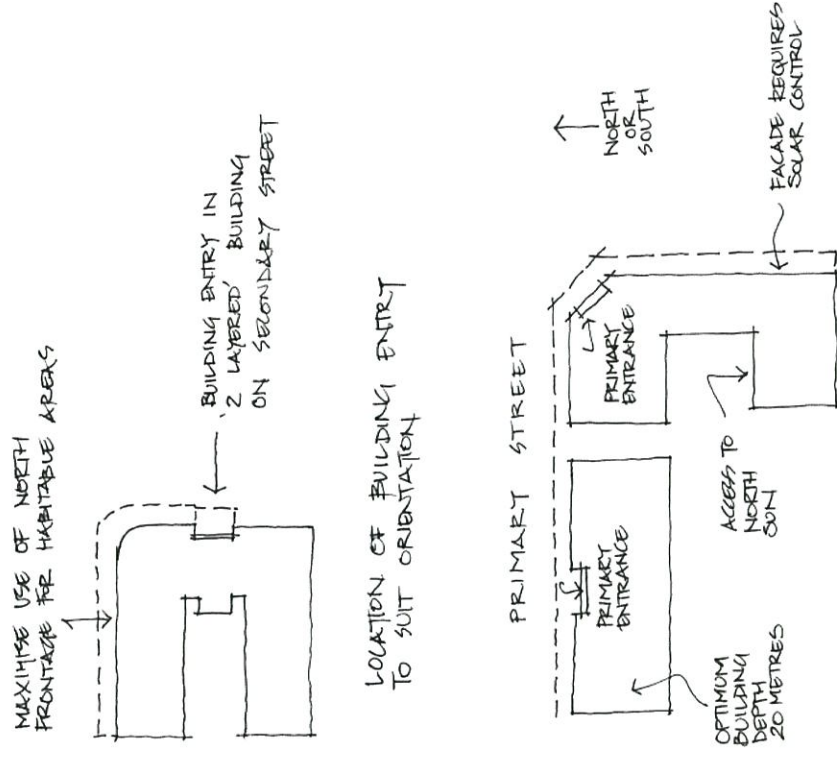 MAXIMISE USE OF NORTH
FRONTAGE FOR HABITABLE AREAS
BUILDING ENTRY IN
'2 LAYERED' BUILDING
ON SECONDARY STREET
LOCATION OF BUILDING ENTRY
TO SUIT ORIENTATION
PRIMARY STREET
NORTH
OR
SOUTH
PRIMARY
ENTRANCE
PRIMARY
ENTRANCE
OPTIMUM
BUILDING
DEPTH
20 METRES
ACCESS TO
NORTH
SUN
FACADE REQUIRES
SOLAR CONTROL